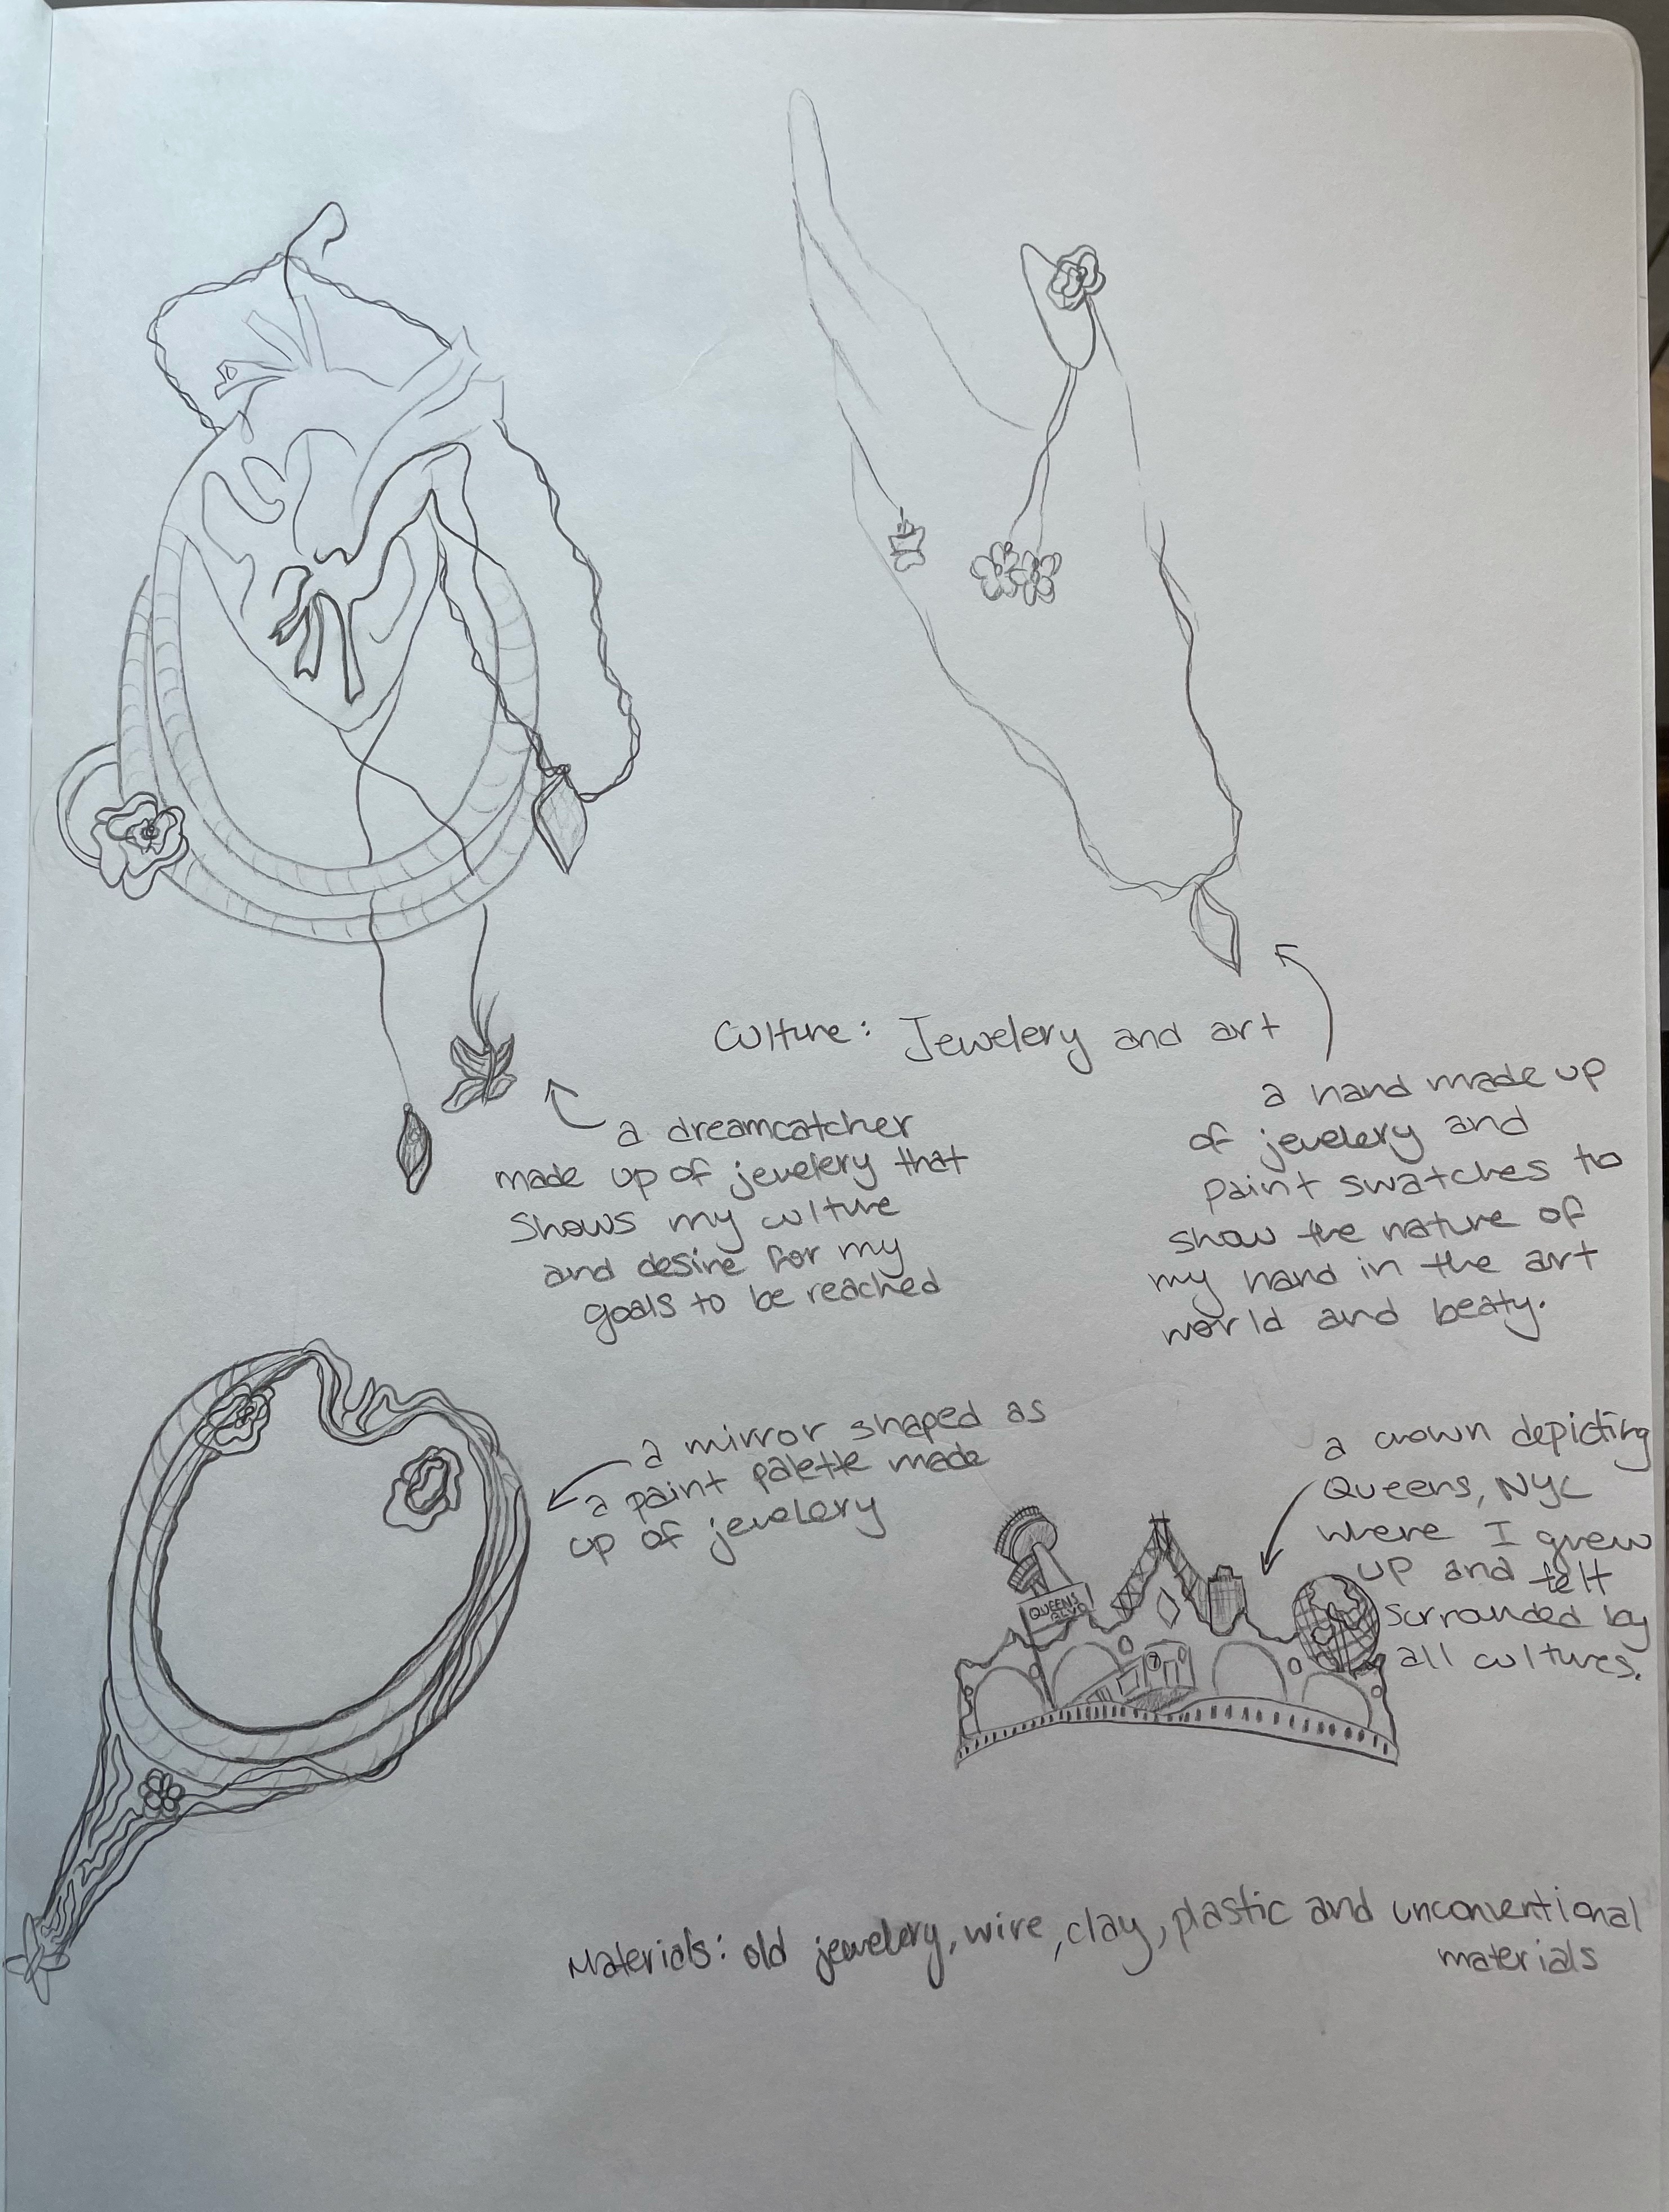 Culture: Jewelery and art
a dreamcatcher
made up of jewelery that
shows my culture
and desire for my
goals to be reached
a hand made up
of jewelery and
paint swatches to
show the nature of
my hand in the art
world and beaty.
a mirror shaped as
a paint palette made
up of jewelery
a crown depicting
Queens, NYC
where I grew
up and felt
surrounded by
all cultures.
QUEENS
BLVD
7
Materials: old jewelery, wire, clay, plastic and unconventional
materials